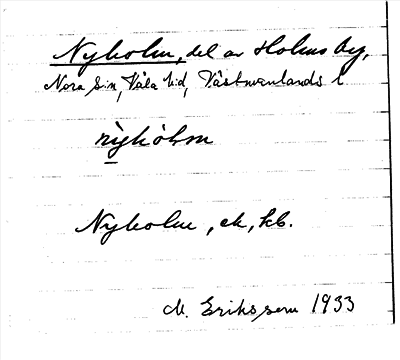 Nyholm, del av Holms by,
Nora sn, Våla hd, Västmanlands l
nỳhòlm
Nyholm, ek, kb.
M. Eriksson 1933